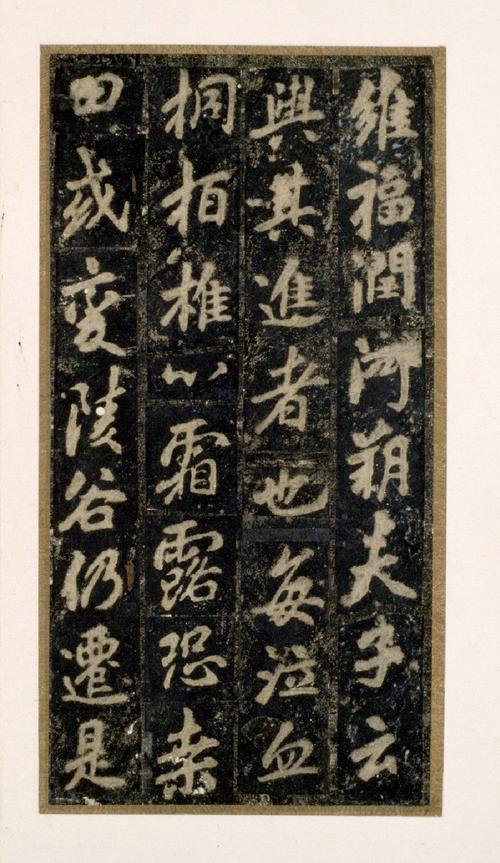 維福潤河朔夫子云
與其進者也每泣血
桐柏椎心霜露恐桒
田或變陵谷仍遷是